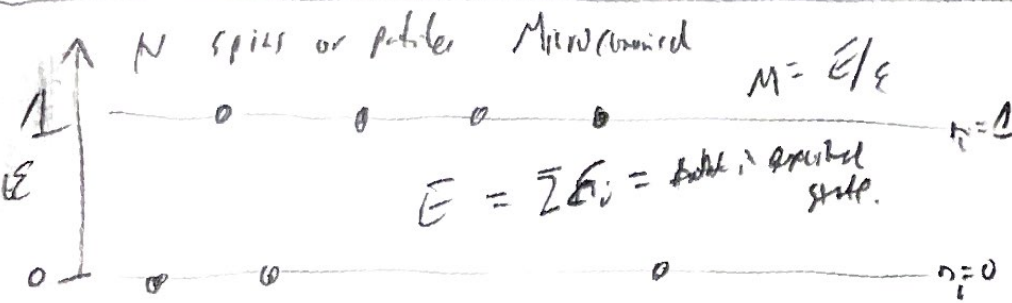 N spins or particles Microcanonical
M = E/ε
1 n_i = 1
ε
E = Σ E_i = total in excited
state.
0 n_i = 0